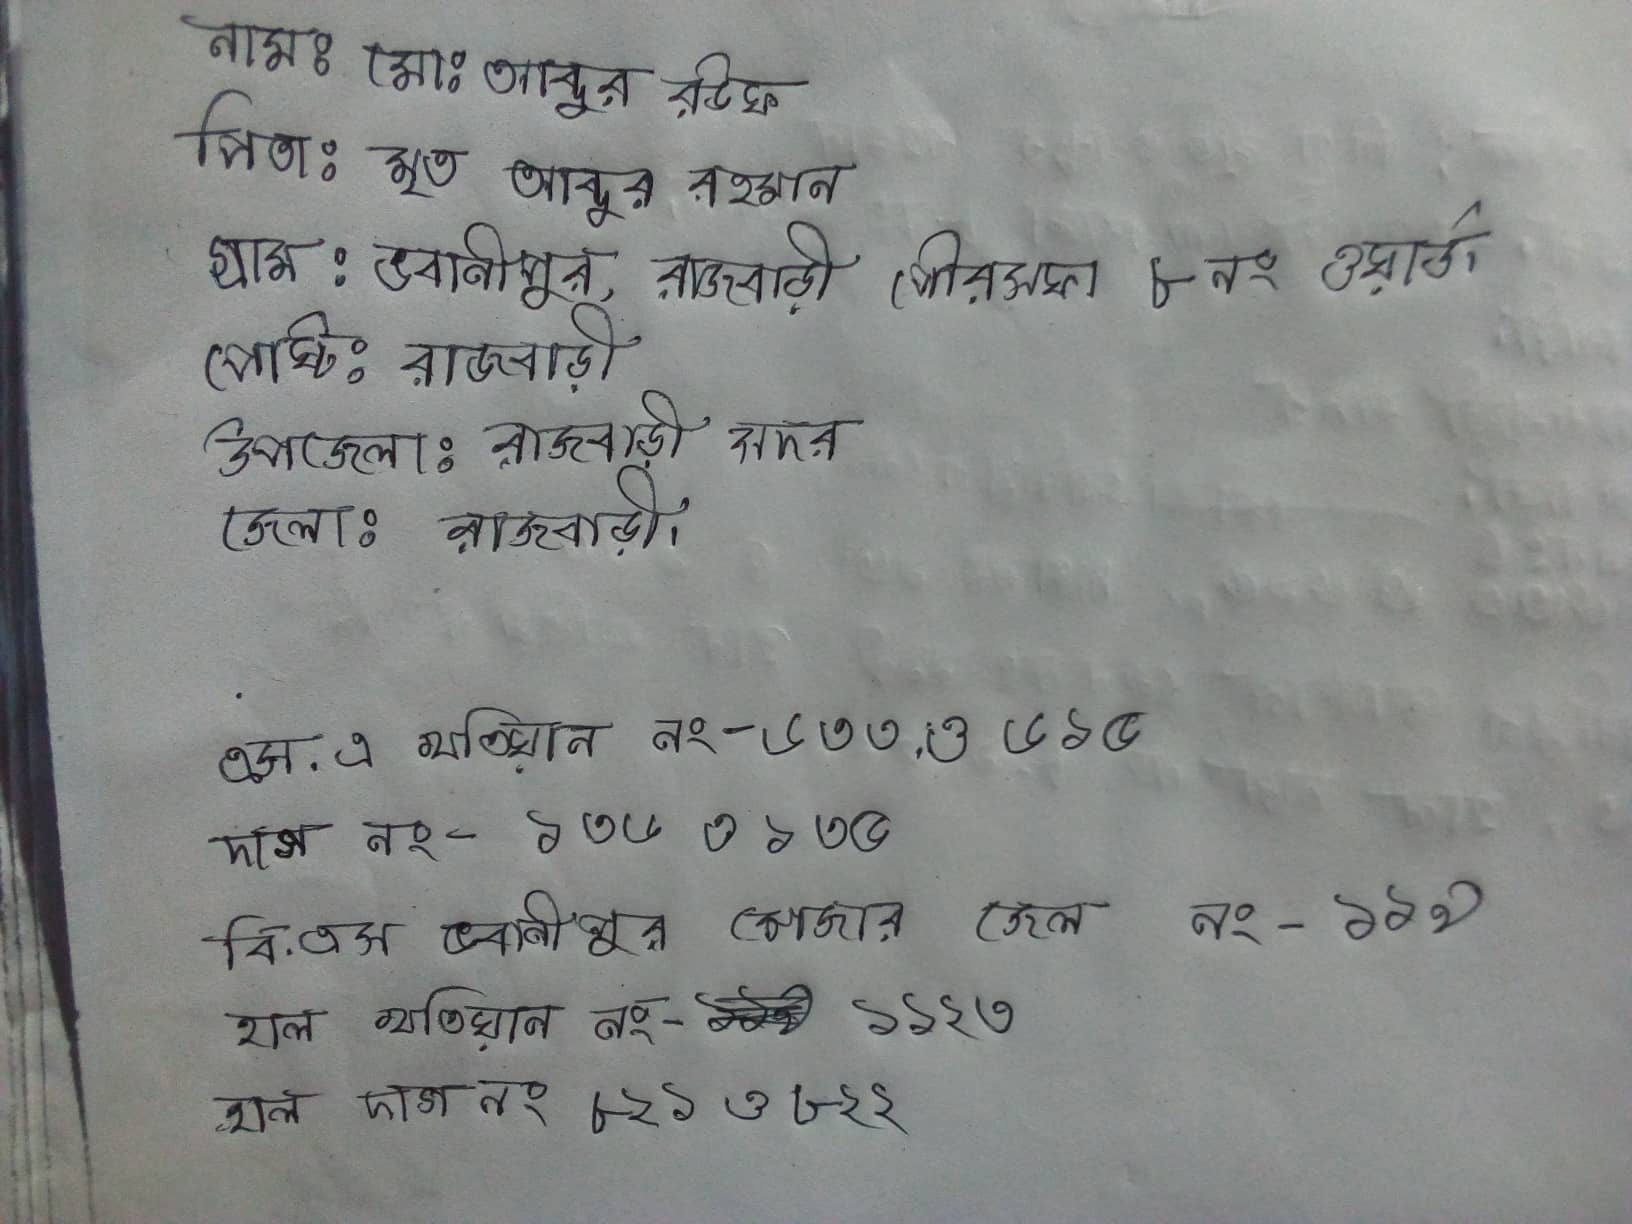 নামঃ মোঃ আব্দুর রউফ
পিতাঃ মৃত আব্দুর রহমান
গ্রাম : ভবানীপুর, রাজবাড়ী পৌরসভা ৮ নং ওয়ার্ড।
পোষ্টঃ রাজবাড়ী
উপজেলাঃ রাজবাড়ী সদর
জেলাঃ রাজবাড়ী।
এস. এ খতিয়ান নং- ৬৩৩, ও ৬১৫
দাগ নং- ১৩৬ ও ১৩৫
বি.এস ভবানীপুর মৌজার জেল নং- ১১২
হাল খতিয়ান নং- ১১২৩
হাল দাগ নং ৮২১ ও ৮২২